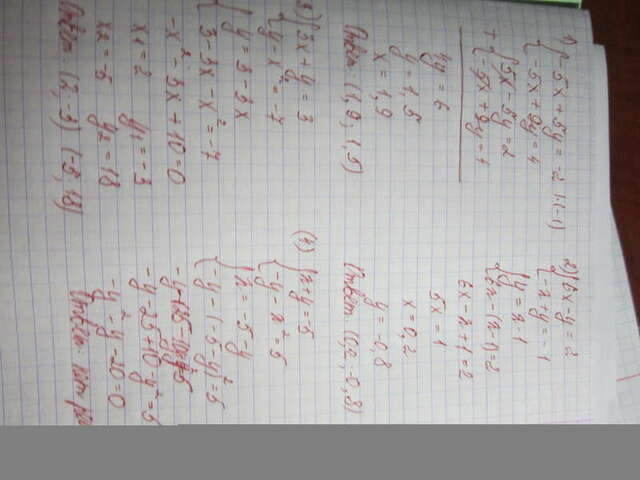 1) { -5x + 5y = -2 |·(-1)
{ -5x + 9y = 4
+ { 5x - 5y = 2
{ -5x + 9y = 4
4y = 6
y = 1,5
x = 1,9
Ответ: (1,9; 1,5)
2) { 6x - y = 2
{ -x - y = -1
6x - x + 1 = 2
5x = 1
x = 0,2
y = -0,8
Ответ (0,2; -0,8)
3) { 3x + y = 3
{ y - x² = -7
{ y = 3 - 3x
{ 3 - 3x - x² = -7
-x² - 3x + 10 = 0
x₁ = 2 y₁ = -3
x₂ = -5 y₂ = 18
Ответ: (2; -3) (-5; 18)
(4) { x + y = -5
{ -y - x² = 5
{ x = -5 - y
{ -y - (-5 - y)² = 5
-y - 25 + 10 - y² = 5
-y² - y - 20 = 0
Ответ: нет